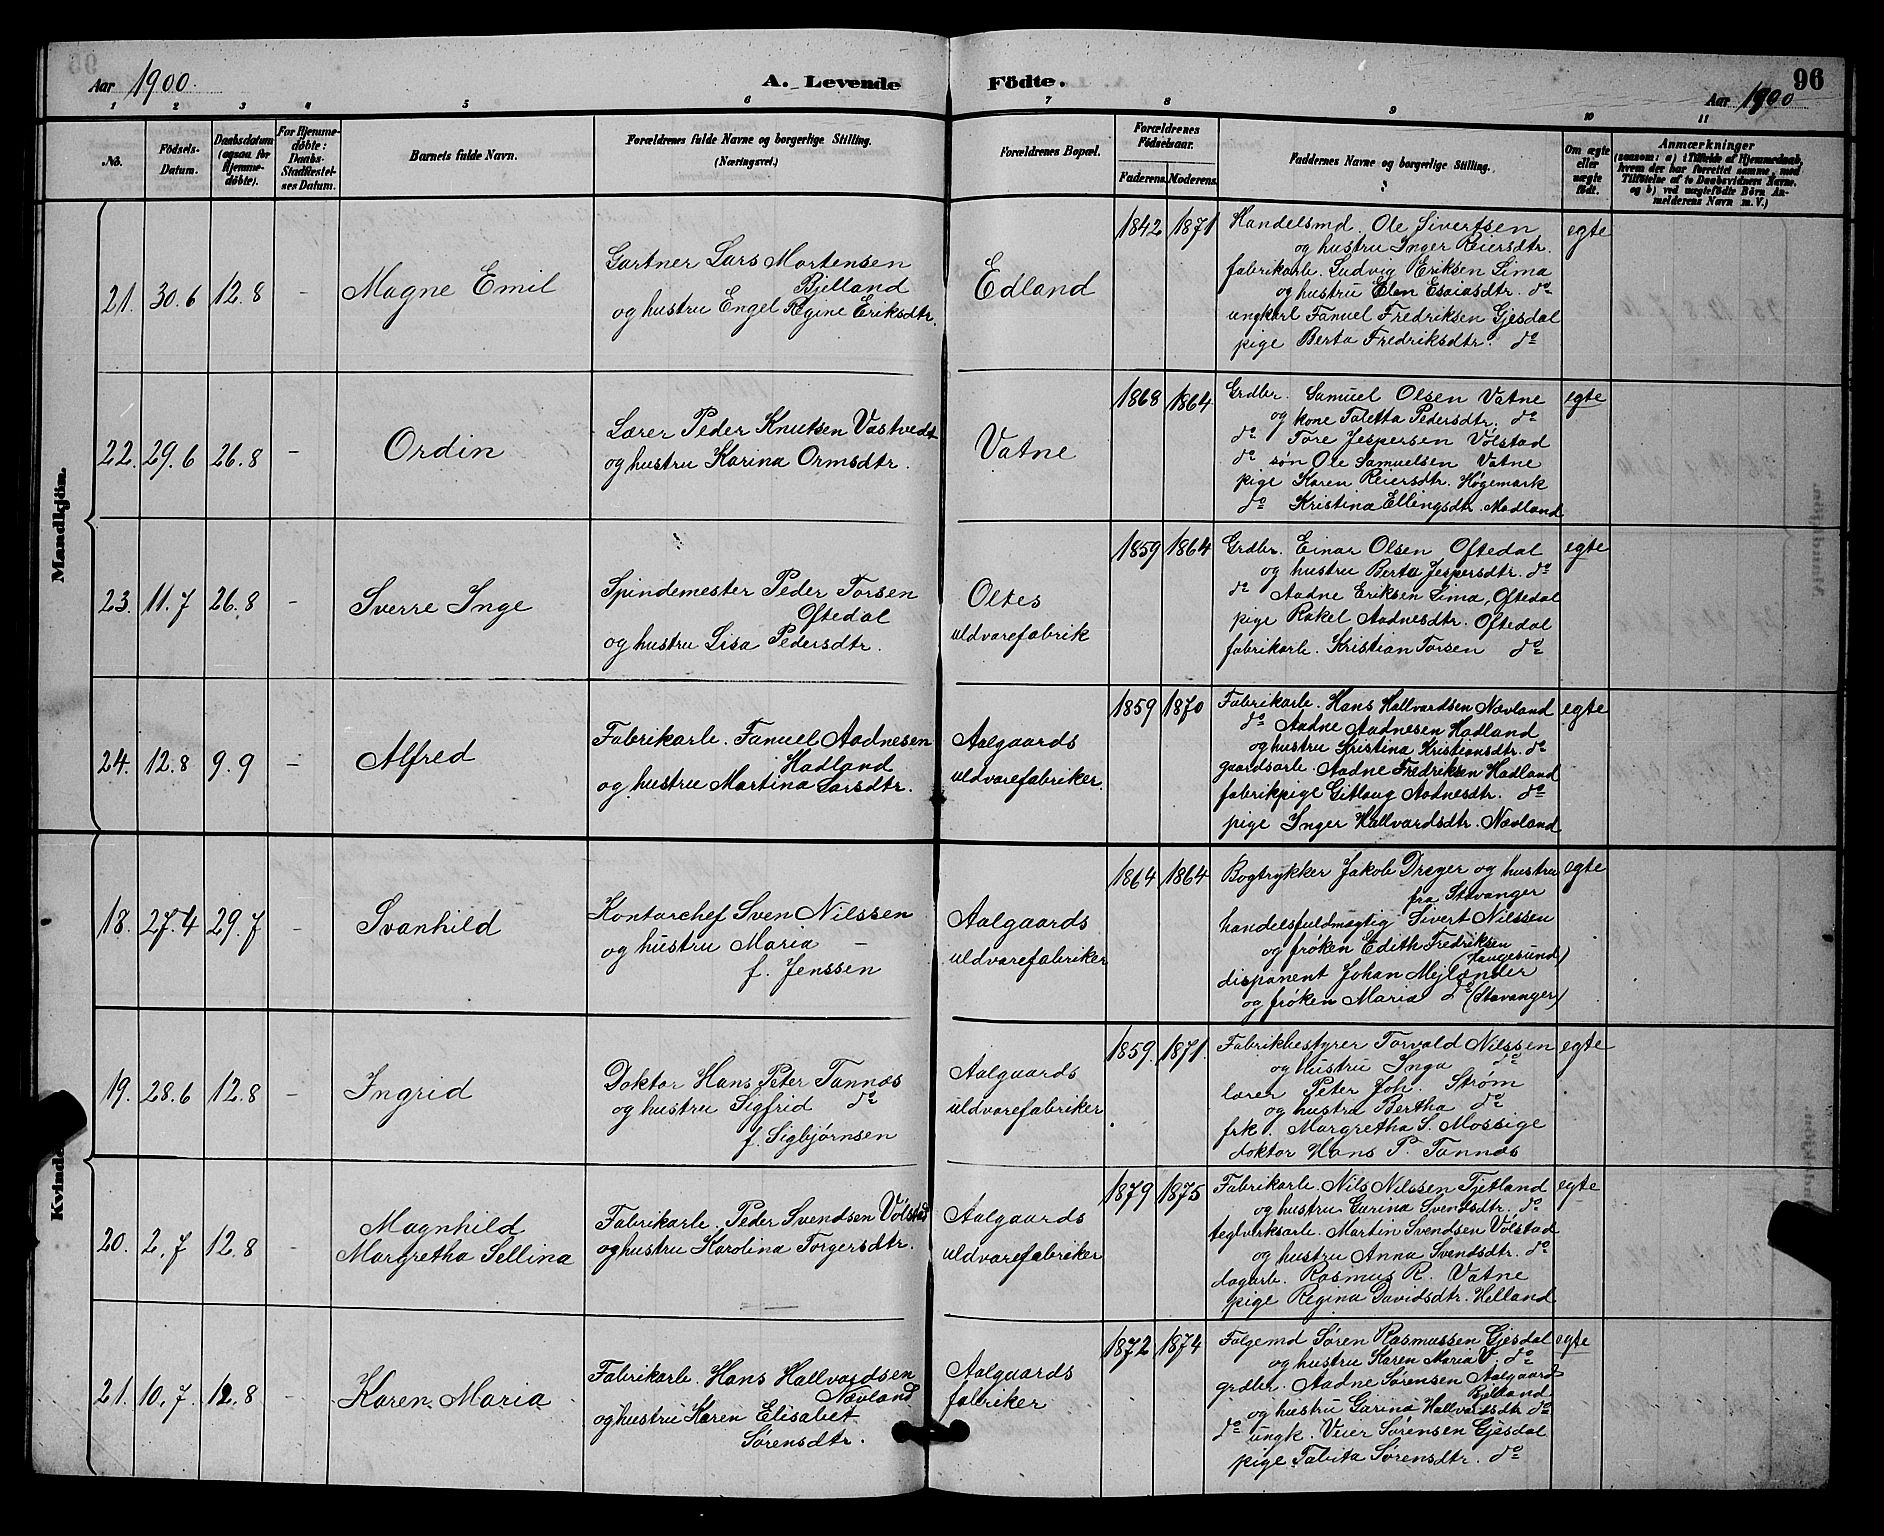 Aar 1900.
A. Levende Födte.
96
Aar 1900
1 2 3 4 5 6 7 8 9 10 11
No.
Födsels-
Datum.
Daabsdatum
(ogsaa for
Hjemme-
døbte).
For Hjemme-
døbte:
Daabs-
Stadfæstel-
ses Datum.
Barnets fulde Navn.
Forældrenes fulde Navne og borgerlige Stilling.
(Næringsvei.)
Forældrenes Bopæl.
Forældrenes
Födselsaar.
Faderens.
Moderens.
Faddernes Navne og borgerlige Stilling.
Om ægte
eller
uægte
født.
Anmærkninger
(saasom: a) i Tilfælde af Hjemmedaab,
hvem der har forrettet samme, med
Tilføielse af to Daabsvidners Navne,
og b) ved uægtefödte Börn An-
melderens Navn m. V.)
Mandkjön.
21. 30.6 12.8 -
Magne Emil
Gartner Lars Mortensen
Bjelland
og hustru Engel Regine Eriksdtr.
Edland
1842 1871
Handelsmd. Ole Sivertsen
og hustru Inger Reiersdtr.
fabrikarb. Ludvig Eriksen Lima
og hustru Elen Esaiasdtr. do
ungkarl Fanuel Fredriksen Gjesdal
pige Berta Fredriksdtr. do
egte
22. 29.6 26.8 -
Ordin
Lærer Peder Knutsen Vastvedt
og hustru Karina Ormsdtr.
Vatne
1868 1864
Grdbr. Samuel Olsen Vatne
og kone Taletta Pedersdtr. do
do Tore Jespersen Völstad
do søn Ole Samuelsen Vatne
pige Karen Reiersdtr. Høgemark
do Kristina Ellingsdtr. Madland
egte
23. 11.7 26.8 -
Sverre Inge
Spindemester Peder Torsen
Oftedal
og hustru Lisa Pedersdtr.
Oltes
uldvarefabrik
1859 1864
Grdbr. Einar Olsen Oftedal
og hustru Berta Jespersdtr. do
do Aadne Eriksen Lima, Oftedal
pige Rakel Aadnesdtr. Oftedal
fabrikarb. Kristian Torsen do
egte
24. 12.8 9.9 -
Alfred
Fabrikarb. Fanuel Aadnesen
Hadland
og hustru Martina Larsdtr.
Aalgaards
uldvarefabriker.
1859 1870
Fabrikarb. Hans Hallvardsen Nævland
do Aadne Aadnesen Hadland
og hustru Kristina Kristiansdtr. do
gaardsarb. Aadne Fredriksen Hadland
fabrikpige Gitlaug Aadnesdtr. do
pige Inger Hallvardsdtr. Nævland
egte
Kvindek
18. 27.4 29.7 -
Svanhild
Kontorchef Sven Nilssen
og hustru Maria -
f. Jenssen
Aalgaards
uldvarefabriker
1864 1864
Bogtrykker Jakob Dreyer og hustru
fra Stavanger
handelsfuldmægtig Sivert Nilssen
og frøken Edith Fredriksen
(Haugesund)
disponent Johan Mejlænder
og frøken Maria do (Stavanger)
egte
19. 28.6 12.8 -
Ingrid
Doktor Hans Peter Tannæs
og hustru Sigfrid do
f. Sigbjørnsen
Aalgaards
uldvarefabriker
1859. 1871.
Fabrikbestyrer Torvald Nilssen
og hustru Inga do
lærer Peter Joh. Strøm
og hustru Bertha do
frk. Margretha S. Mossige
doktor Hans P. Tannæs
egte
20. 2.7 12.8 -
Magnhild
Margretha Sellina
Fabrikarb. Peder Svendsen Völstad
og hustru Karolina Torgersdtr.
Aalgaards
uldvarefabriker
1879 1875
Fabrikarb. Nils Nilssen Tjetland
og hustru Garina Svendsdtr. do
teglverksarb. Martin Svendsen Völstad
og hustru Anna Svendsdtr. do
dagarb. Rasmus R. Vatne
pige Regina Davidsdtr. Helland
egte
21. 10.7. 12.8 -
Karen Maria
Fabrikarb. Hans Hallvardsen
Nævland
og hustru Karen Elisabet
Sørensdtr.
Aalgaards
fabriker
1872 1874
Følgemd Søren Rasmussen Gjesdal
og hustru Karen Maria V. do
grdbr. Aadne Sørensen Aalgaard
Bjelland
og hustru Garina Hallvardsdtr do
do ungk. Veier Sørensen Gjesdal
pige Tabita Sørensdtr. do
egte